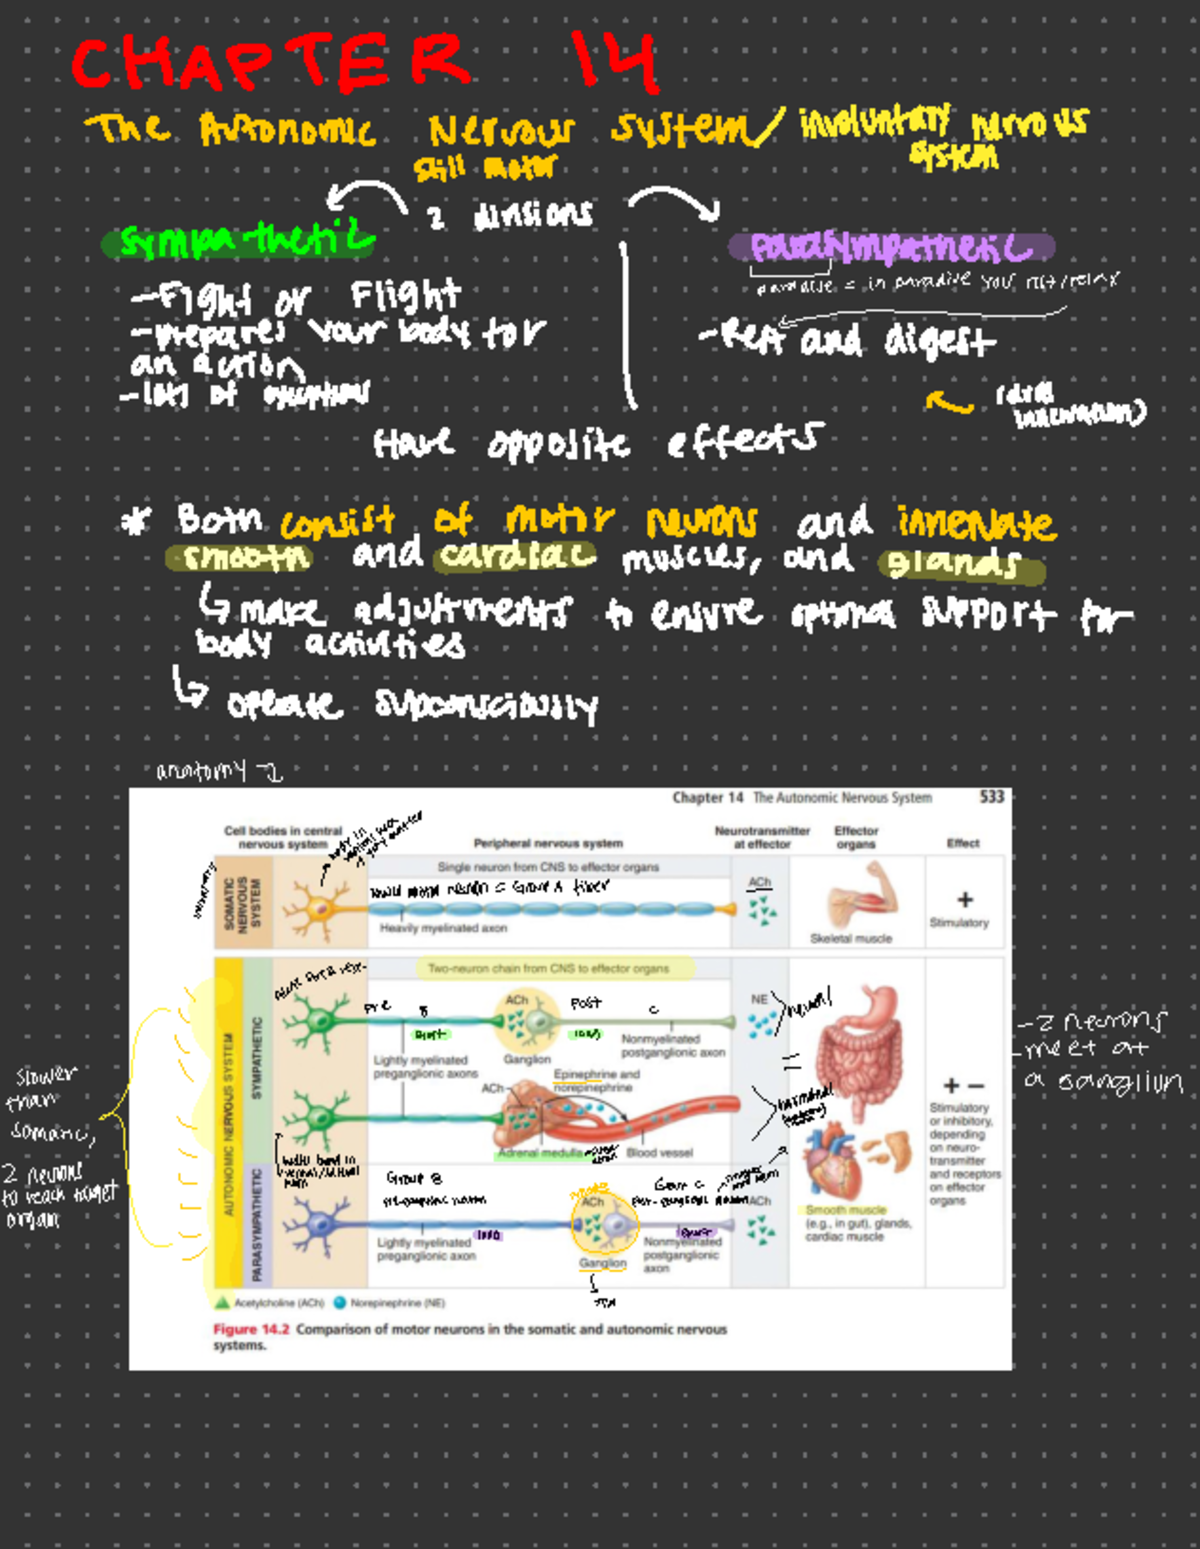 CHAPTER 14
The Autonomic Nervous System/ involuntary nervous system
still motor
2 divisions
Sympathetic
Parasympathetic
paradise = in paradise you rest/relax
-Fight or Flight
-prepares your body for
an action
-lots of exceptions
-Rest and digest
Have opposite effects
* Both consist of motor neurons and innervate
smooth and cardiac muscles, and glands
↳ make adjustments to ensure optimal support for
body activities
↳ operate subconsciously
anatomy
Chapter 14 The Autonomic Nervous System 533
Cell bodies in central nervous system
Peripheral nervous system
Neurotransmitter at effector
Effector organs
Effect
SOMATIC NERVOUS SYSTEM
Single neuron from CNS to effector organs
neuron = Group A fiber
Heavily myelinated axon
ACh
Skeletal muscle
+
Stimulatory
AUTONOMIC NERVOUS SYSTEM
SYMPATHETIC
Two-neuron chain from CNS to effector organs
Pre B
short
ACh
Post C
long
NE
neural
Lightly myelinated preganglionic axons
Ganglion
Nonmyelinated postganglionic axon
Epinephrine and norepinephrine
ACh
Adrenal medulla
Blood vessel
hormonal
=
+ −
Stimulatory or inhibitory, depending on neuro-transmitter and receptors on effector organs
PARASYMPATHETIC
Group B
preganglionic neuron
long
Lightly myelinated preganglionic axon
ACh
Ganglion
Group C
post-ganglionic neuron
short
Nonmyelinated postganglionic axon
ACh
Smooth muscle (e.g., in gut), glands, cardiac muscle
Acetylcholine (ACh) Norepinephrine (NE)
Figure 14.2 Comparison of motor neurons in the somatic and autonomic nervous
systems.
slower
than
somatic,
2 neurons
to reach target
organ
-2 neurons
-meet at
a ganglion